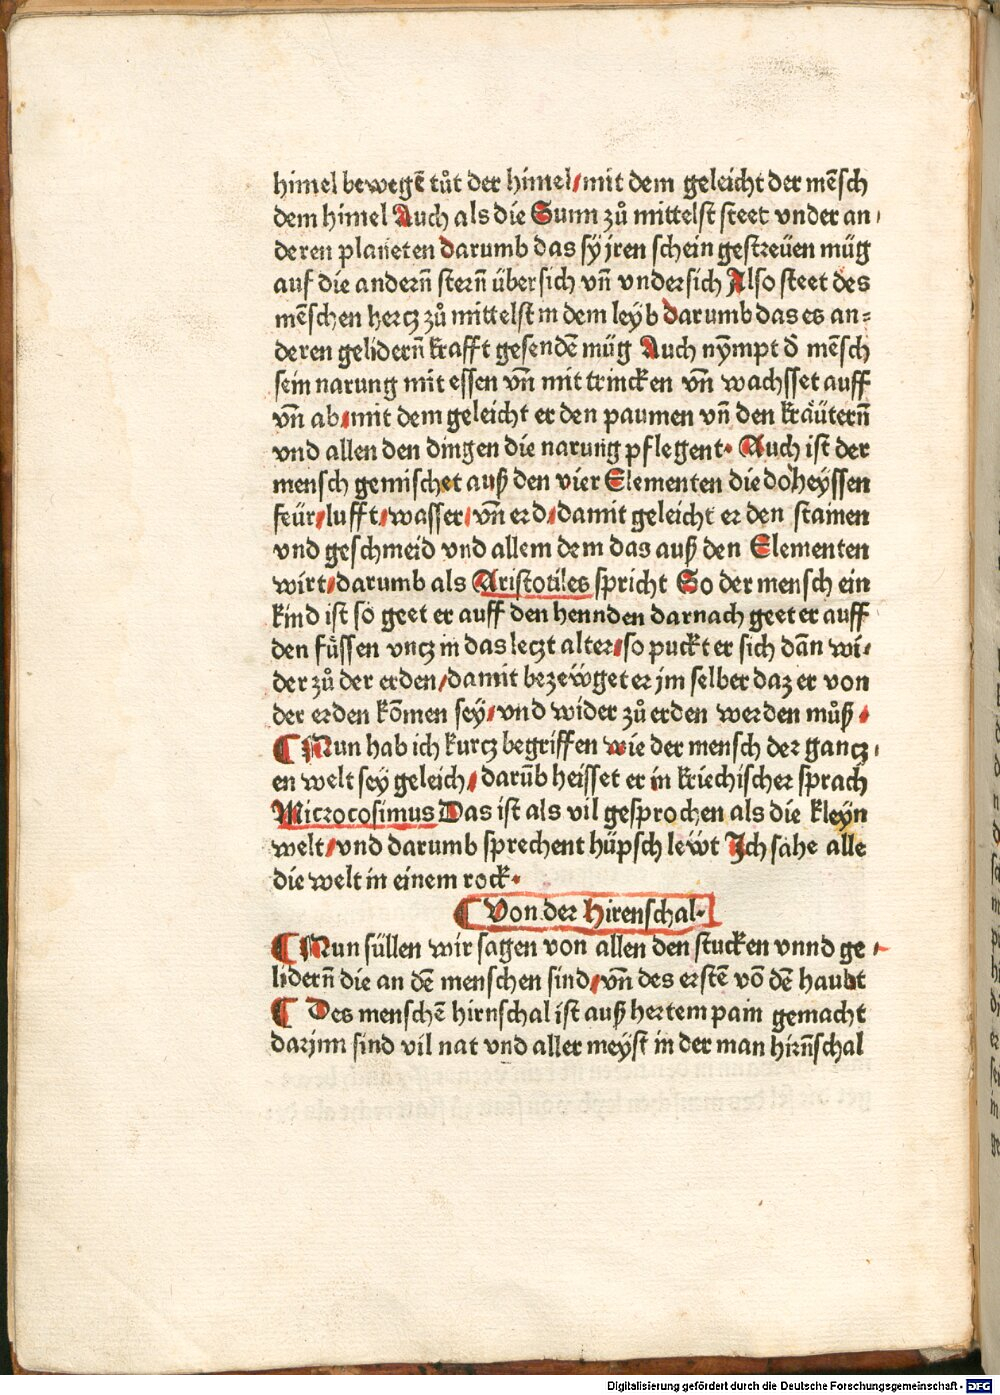 himel bewegē tůt der himel/mit dem geleicht der mēsch
dem himel Auch als die Sunn zů mittelst steet vnder an⸗
deren planeten darumb das sÿ jren schein gestreüen müg
auf die andern̄ stern̄ über sich vn̄ vndersich Also steet des
mēschen hercz zů mittelst in dem leyb darumb das es an⸗
deren gelidern̄ krafft gesendē müg Auch nȳmpt d̄ mēsch
sein narung mit essen vn̄ mit trincken vn̄ wachsset auff
vn̄ ab/mit dem geleicht er den paumen vn̄ den kräutern̄
vnd allen den dingen die narung pflegent. Auch ist der
mensch gemischet auß den vier Elementen die do heyssen
feür/lufft/wasser/vn̄ erd/damit geleicht er den stainen
vnd geschmeid vnd allem dem das auß den Elementen
wirt/darumb als Aristotiles spricht So der mensch ein
kind ist so geet er auff den hennden darnach geet er auff
den füssen vncz in das leczt alter/so puckt er sich dān wi⸗
der zů der erden/damit bezeẅget er jm selber daz er von
der erden kōmen sey/vnd wider zů erden werden můß.
¶ Nun hab ich kurcz begriffen wie der mensch der gancz⸗
en welt sey geleich/darūb heisset er in kriechischer sprach
Microcosimus Das ist als vil gesprochen als die kleyn
welt/vnd darumb sprechent hüpsch leẅt Ich sahe alle
die welt in einem rock.
¶ Von der Hirenschal.
¶ Nun süllen wir sagen von allen den stucken vnnd ge⸗
lidern̄ die an dē menschen sind/vn̄ des erstē vō dē haubt
¶ Des menschē hirnschal ist auß hertem pain gemacht
darjnn sind vil nat vnd aller meyst in der man hirn̄schal
Digitalisierung gefördert durch die Deutsche Forschungsgemeinschaft - DFG